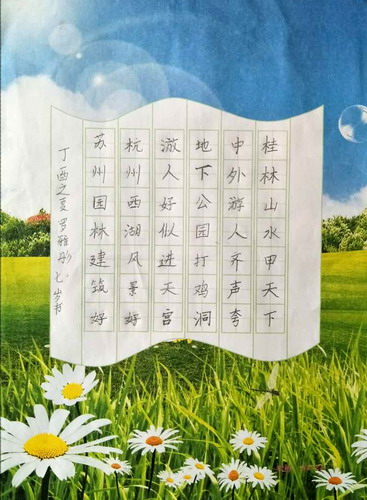 桂林山水甲天下
中外游人齐声夸
地下公园打鸡洞
游人好似进天宫
杭州西湖风景好
苏州园林建筑好
丁酉之夏罗雅彤七岁书